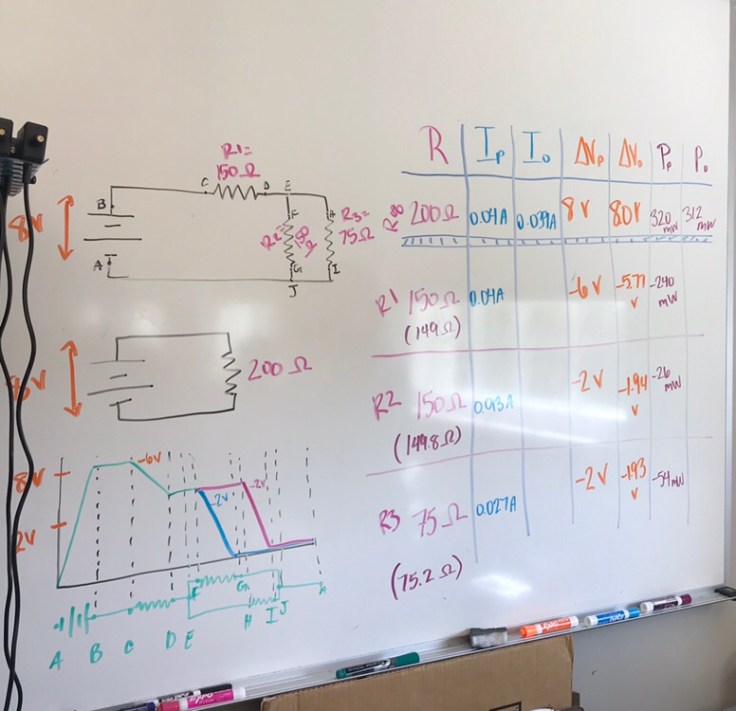 R1=
150 Ω
C
D
E
B
8V
F
H
R2=
150
Ω
R3=
75Ω
A
G
I
J
8V
200 Ω
8V
-6V
-2V
-2V
2V
F
G
A
B
C
D
E
H
I
J
A
R
Ip
Io
ΔVp
ΔVo
Pp
Po
200Ω
0.04A
0.039A
8V
8.0V
320
mW
312
mW
R1
150Ω
(149Ω)
0.04A
-6V
-5.77
V
-240
mW
R2
150Ω
(149.8Ω)
0.013A
-2V
-1.94
V
-26
mW
R3
75Ω
(75.2Ω)
0.027A
-2V
-1.93
V
-54mW